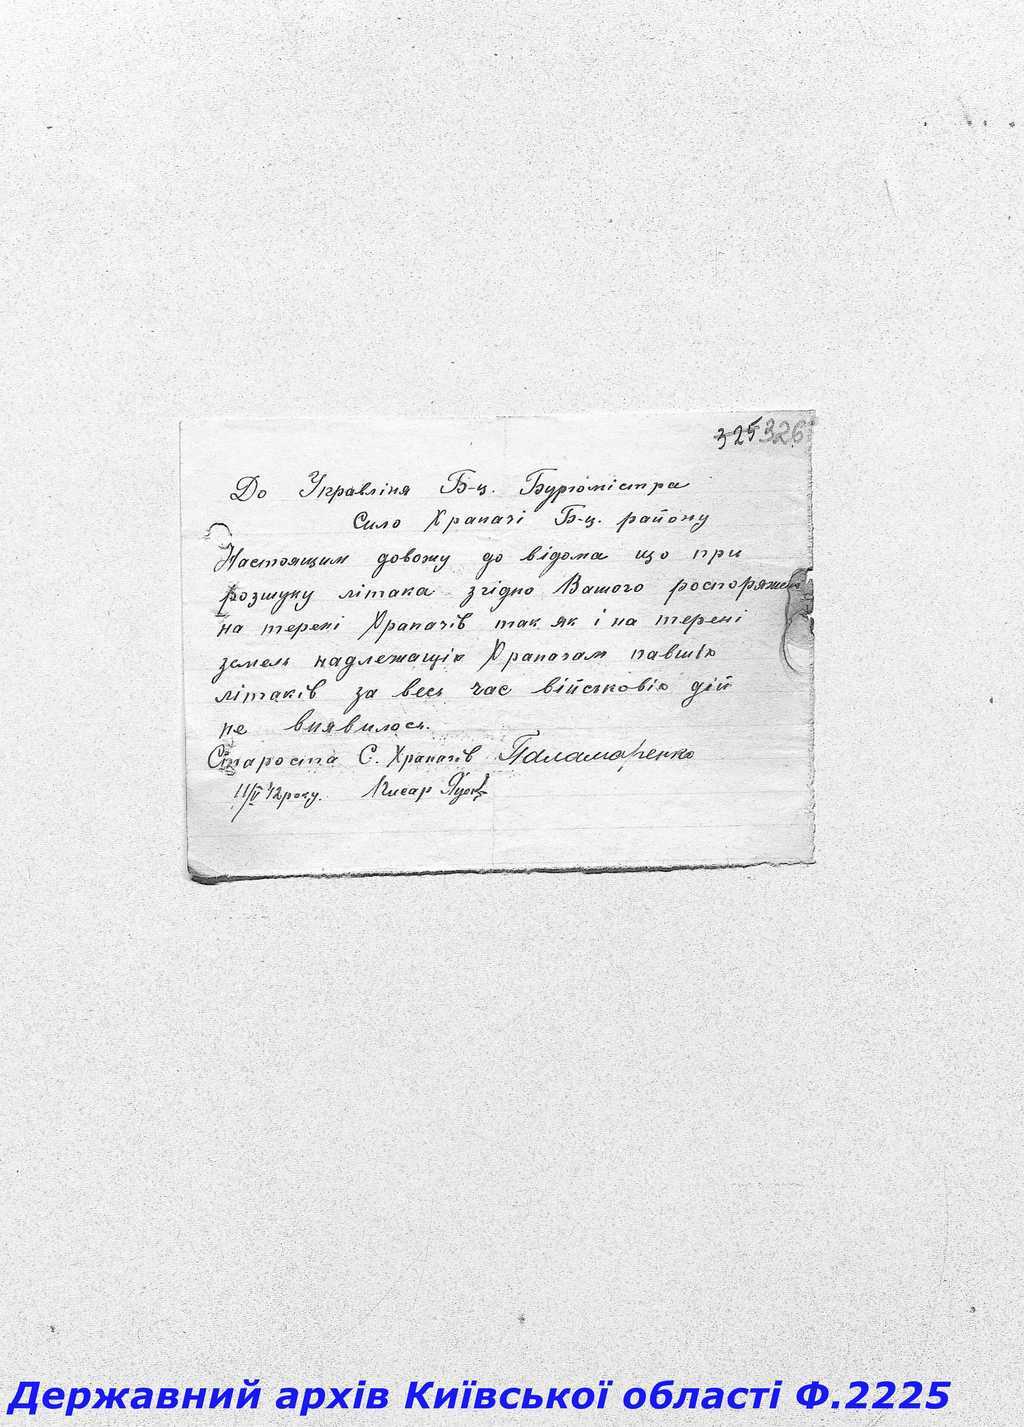 325 326
До Управліня Б-ц. Бургомістра
Село Храпачі Б-ц. району
Настоящим довожу до відома що при
розшуку літака згідно Вашого роспоряжен
на терені Храпачів так як і на терені
земель надлежащіх Храпачам павшіх
літаків за весь час військовіх дій
не виявилось.
Староста С. Храпачів Паламаренко
11/V 42 року. Писар
Державний архів Київської області Ф.2225